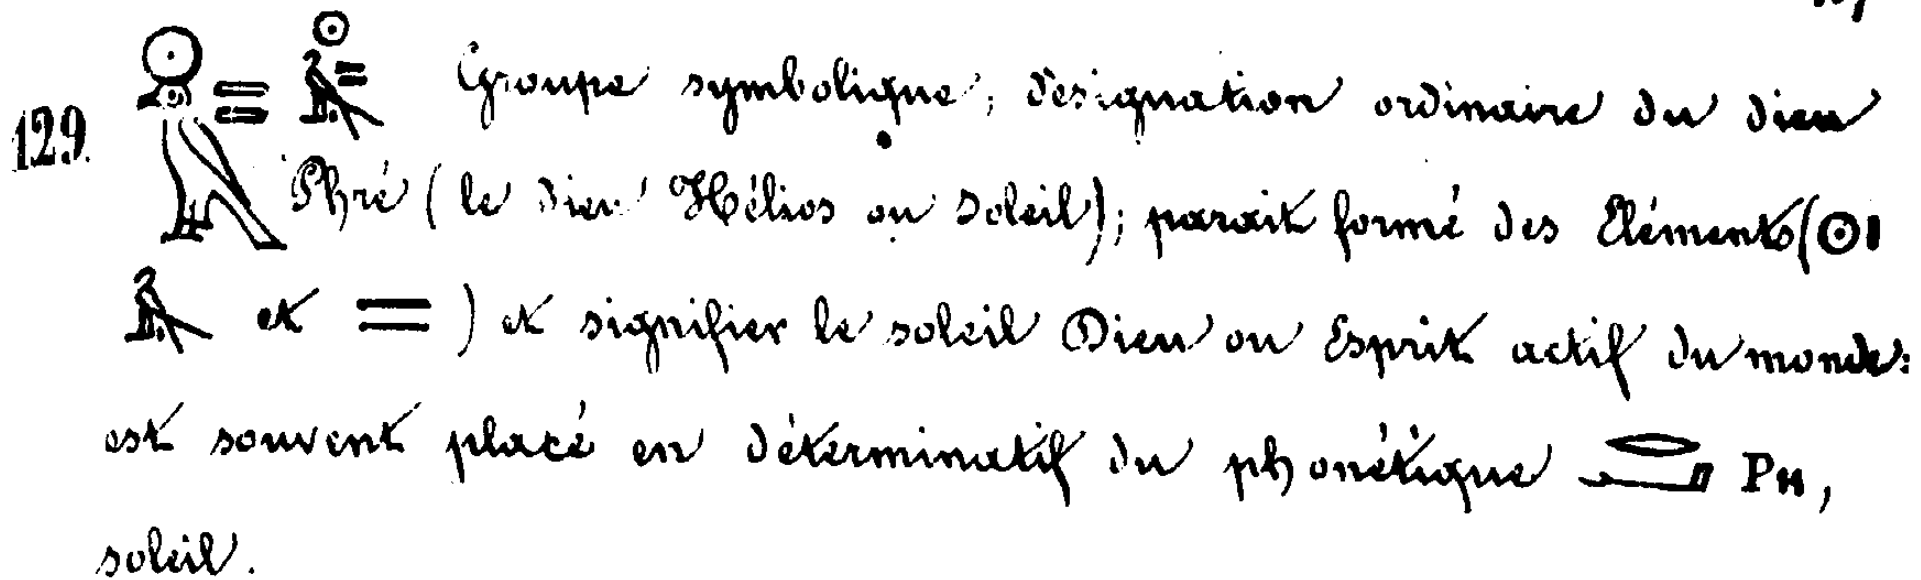 129. 𓇳𓅃𓏭 = 𓇳𓅃 = Groupe symbolique, désignation ordinaire du dieu
Phré (le dieu Hélios ou soleil); parait formé des Eléments (𓇳𓏤
𓅃 et =) et signifier le soleil Dieu ou Esprit actif du monde:
est souvent placé en déterminatif du phonétique 𓂋𓂝 Ρⲏ,
soleil.